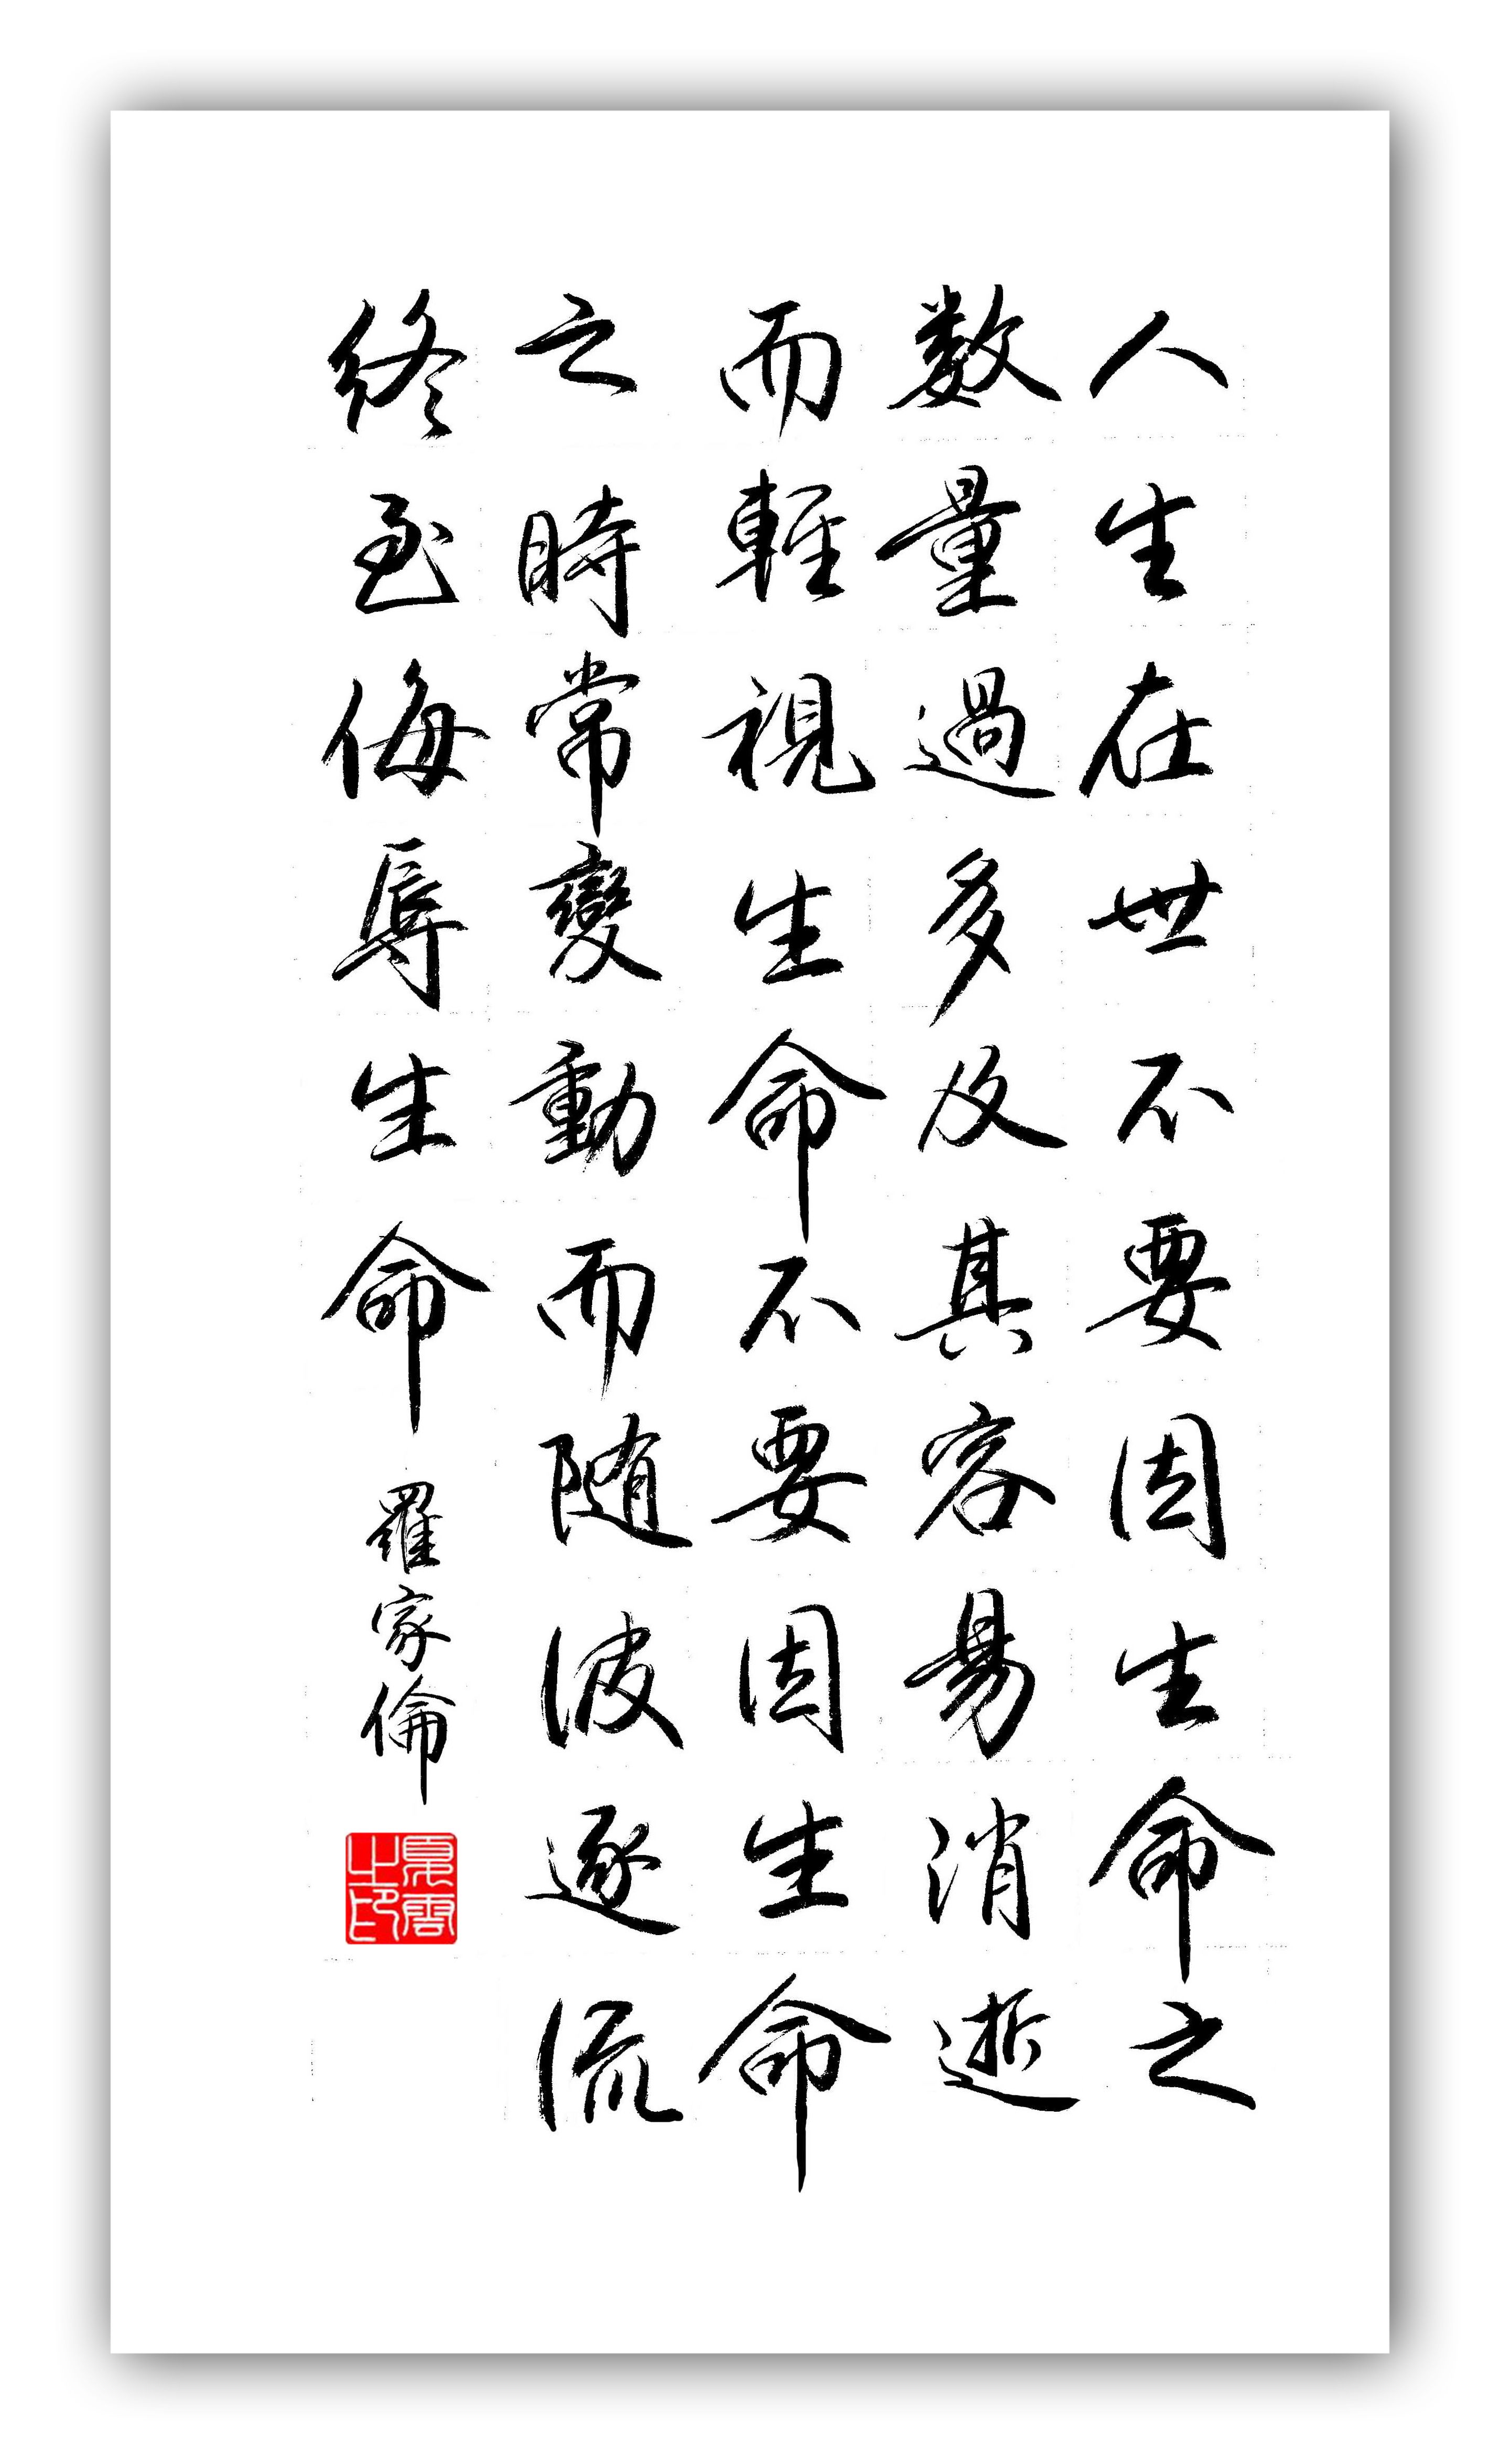 人生在世不要因生命之
数量過多及其容易消逝
而輕視生命不要因生命
之時常變動而随波逐流
终至侮辱生命
羅家倫
夏雲之印